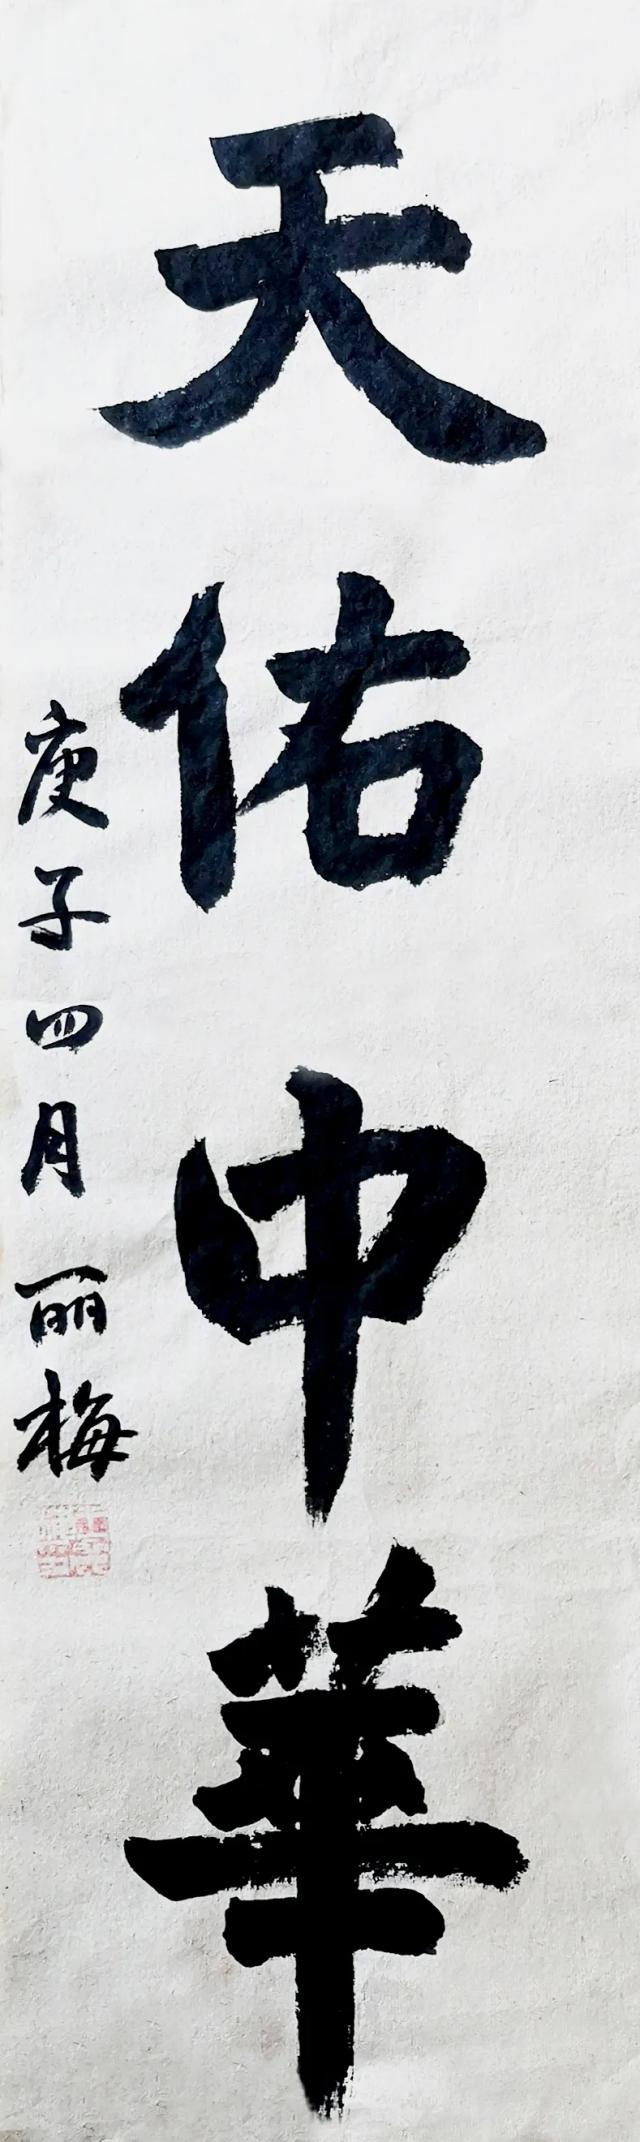 天佑中華
庚子四月丽梅